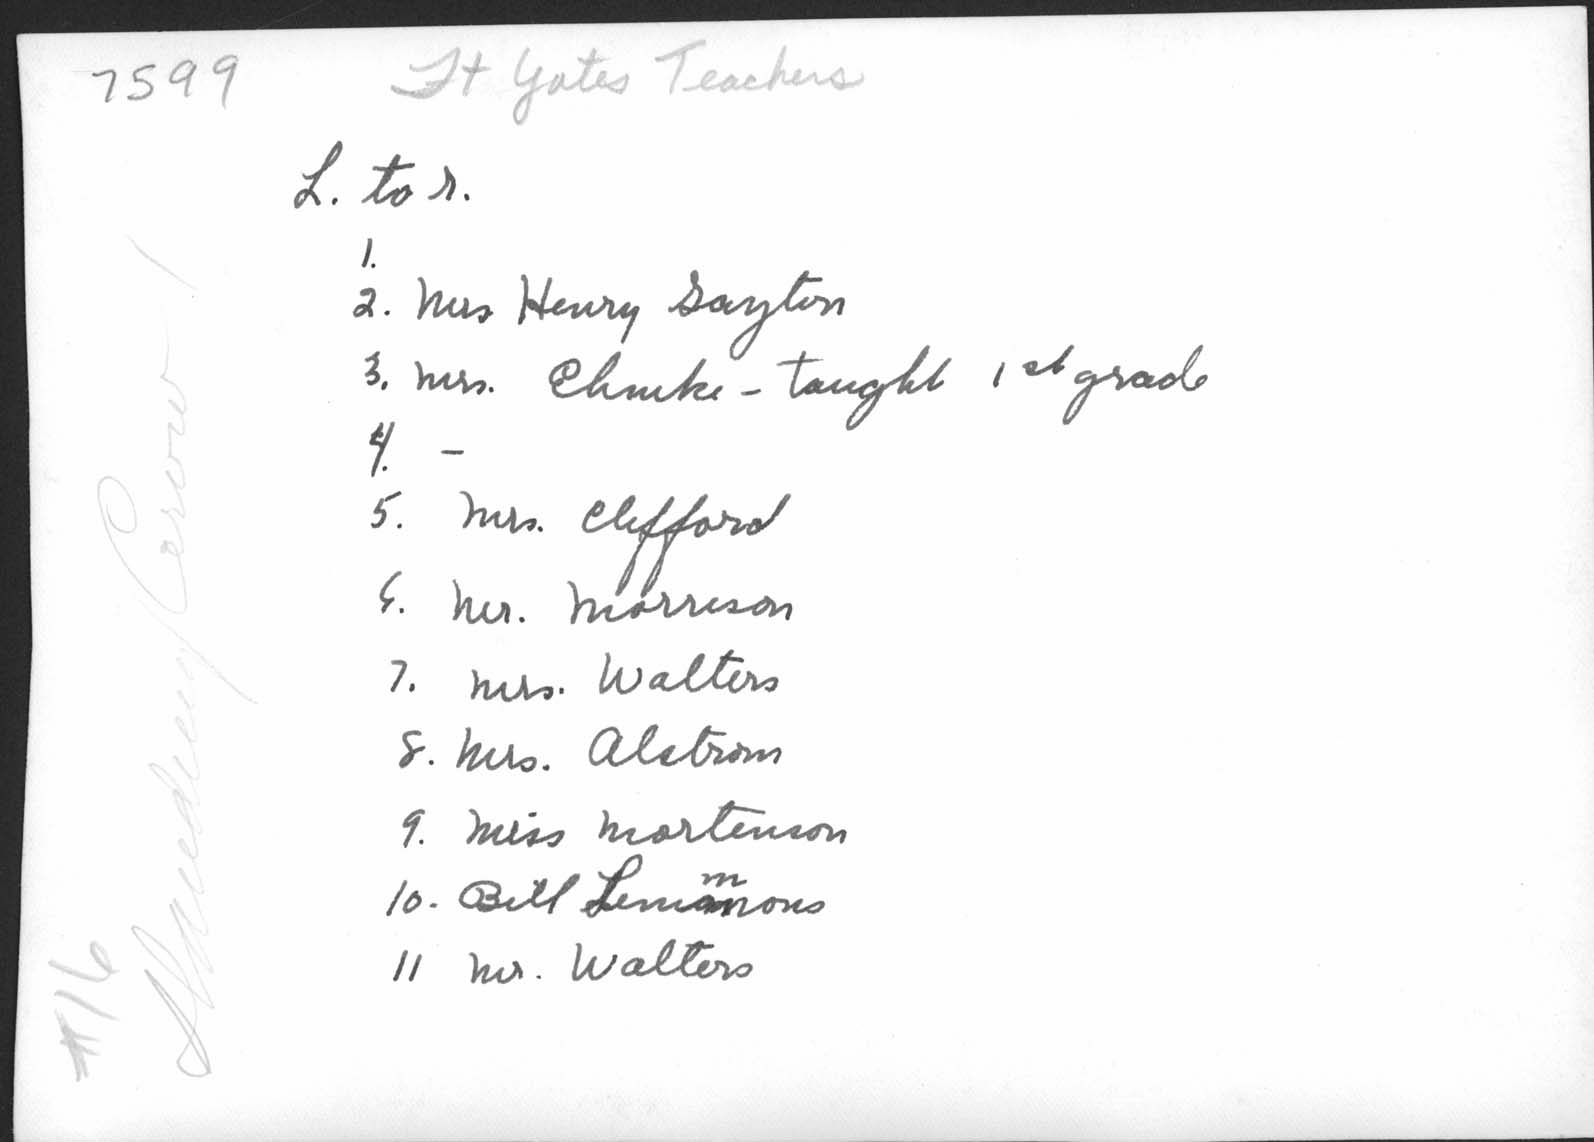 7599
Ft Yates Teachers
L. to r.
1.
2. Mrs Henry Gayton
3. Mrs. Ehmke - taught 1st grade
4. -
5. Mrs. Clifford
6. Mr. Morrison
7. Mrs. Walters
8. Mrs. Alstrom
9. Miss Mortenson
10. Bill Lemmons
11 Mr. Walters
#16